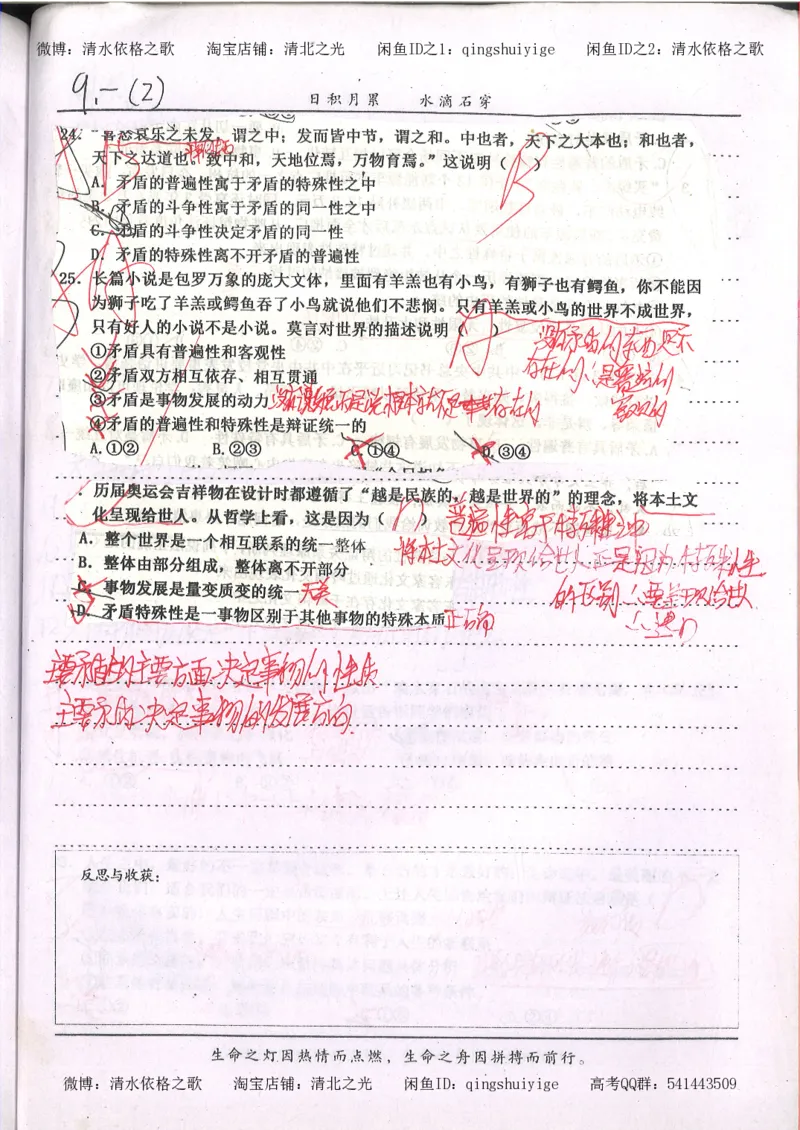 微博：清水依格之歌 淘宝店铺：清北之光 闲鱼ID之1：qingshuiyige 闲鱼ID之2：清水依格之歌
9.一(2)
日积月累 水滴石穿
24. “喜怒哀乐之未发，谓之中；发而皆中节，谓之和。中也者，天下之大本也；和也者，
天下之达道也。致中和，天地位焉，万物育焉。”这说明（ ）
B
A. 矛盾的普遍性寓于矛盾的特殊性之中
B. 矛盾的斗争性寓于矛盾的同一性之中
C. 矛盾的斗争性决定矛盾的同一性
D. 矛盾的特殊性离不开矛盾的普遍性
25. 长篇小说是包罗万象的庞大文体，里面有羊羔也有小鸟，有狮子也有鳄鱼，你不能因
为狮子吃了羊羔或鳄鱼吞了小鸟就说他们不悲悯。只有羊羔或小鸟的世界不成世界，
只有好人的小说不是小说。莫言对世界的描述说明（ ）
A
①矛盾具有普遍性和客观性
②矛盾双方相互依存、相互贯通
存在的，是普遍的
③矛盾是事物发展的动力
客观的
④矛盾的普遍性和特殊性是辩证统一的
A.①② B.②③ C.①④ D.③④
. 历届奥运会吉祥物在设计时都遵循了“越是民族的，越是世界的”的理念，将本土文
化呈现给世人。从哲学上看，这是因为（
D
普遍性寓于特殊性之中
A．整个世界是一个相互联系的统一整体
将本土文化呈现给世人正是因为特殊性
B．整体由部分组成，整体离不开部分
的区别，要呈现给世人
C．事物发展是量变质变的统一 无关
D．矛盾特殊性是一事物区别于其他事物的特殊本质 正确
主要矛盾的主要方面决定事物的性质
主要矛盾决定事物的发展方向
反思与收获：
生命之灯因热情而点燃，生命之舟因拼搏而前行。
微博：清水依格之歌 淘宝店铺：清北之光 闲鱼ID：qingshuiyige 高考QQ群：541443509